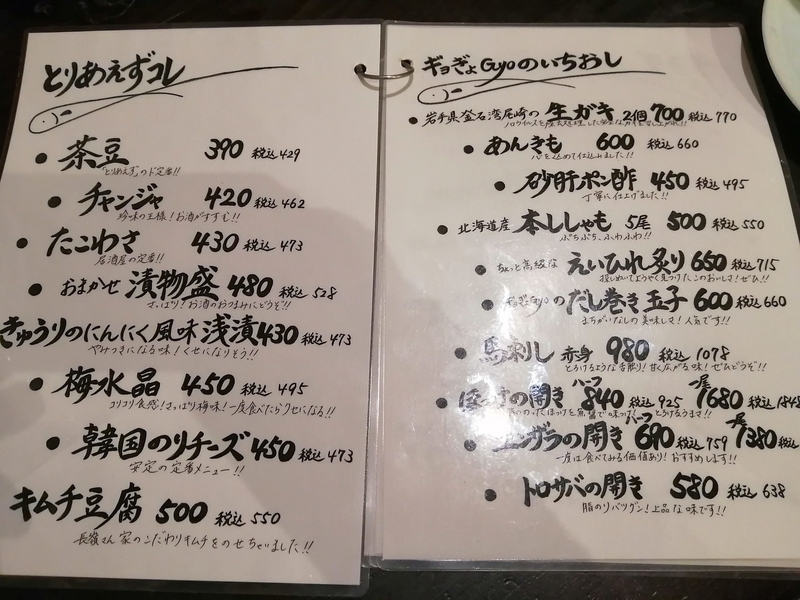 とりあえずコレ
茶豆 390 税込429
とりあえずのド定番!!
チャンジャ 420 税込462
珍味の王様!お酒がすすむ!!
たこわさ 430 税込473
居酒屋の定番!!
おまかせ漬物盛 480 税込528
さっぱり!お酒のおつまみにどうぞ!!
きゅうりのにんにく風味浅漬430 税込473
やみつきになる味!くせになりそう!!
梅水晶 450 税込495
コリコリ食感!さっぱり梅味!一度食べたらクセになる!!
韓国のりチーズ450 税込473
安定の定番メニュー!!
キムチ豆腐 500 税込550
家のこだわりキムチをのせちゃいました!!
ギョぎょGyoのいちおし
岩手県釜石湾尾崎の 生ガキ 2個 700 税込770
あんきも 600 税込660
心を込めて仕込みました!!
砂肝ポン酢 450 税込495
丁寧に仕上げました!!
北海道産 本ししゃも 5尾 500 税込550
ぷちぷち、ふわふわ!!
ちょっと高級な えいひれ炙り 650 税込715
探し求めてようやく見つけたこのおいしさ!ぜひ!!
のだし巻き玉子 600 税込660
まちがいなしの美味しさ!人気です!!
馬刺し 赤身 980 税込1078
とろけるような舌触り!甘く広がる味!ぜひどうぞ!!
の開き ハーフ 840 税込925 一尾 1680 税込1848
の開き ハーフ 690 税込759 一尾 1380 税込
一度は食べてみる価値あり!おすすめします!!
トロサバの開き 580 税込638
脂のりバツグン!上品な味です!!